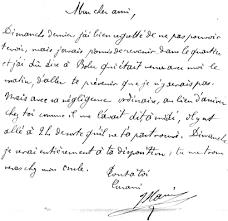 Mon cher ami,
Dimanche dernier j'ai bien regretté de ne pas pouvoir
te voir, mais j'avais promis de revenir dans le quartier
et j'ai dû dire à qui était venu avec moi le
matin, d'aller te prévenir que je n'y serais pas.
Mais avec sa négligence ordinaire, au lieu d'arriver
chez toi comme il me l'avait dit à midi, il y est
allé à 2h de sorte qu'il ne t'a pas trouvé. Dimanche
je serai entièrement à ta disposition, tu me trouv
eras chez mon oncle.
Tout à toi